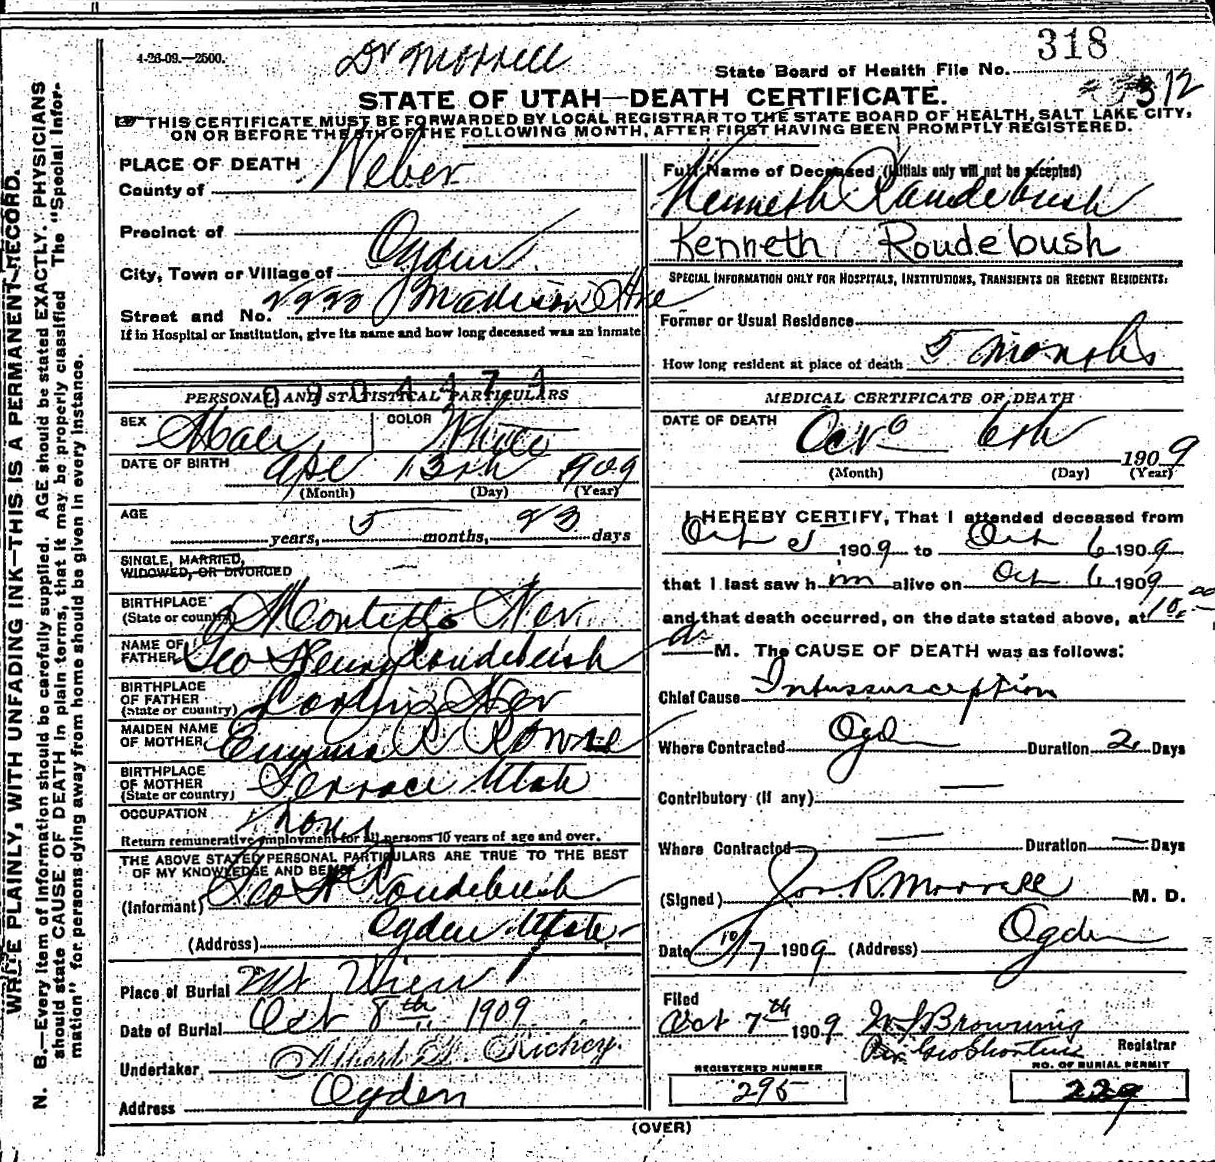 4-26-09.—2500.
Dr Morrell
318
State Board of Health File No.
312
STATE OF UTAH—DEATH CERTIFICATE.
THIS CERTIFICATE MUST BE FORWARDED BY LOCAL REGISTRAR TO THE STATE BOARD OF HEALTH, SALT LAKE CITY,
ON OR BEFORE THE 5TH OF THE FOLLOWING MONTH, AFTER FIRST HAVING BEEN PROMPTLY REGISTERED.
WRITE PLAINLY, WITH UNFADING INK—THIS IS A PERMANENT RECORD.
N. B.—Every item of information should be carefully supplied. AGE should be stated EXACTLY. PHYSICIANS
should state CAUSE OF DEATH in plain terms, that it may be properly classified. The "Special Infor-
mation" for persons dying away from home should be given in every instance.
PLACE OF DEATH
County of Weber
Precinct of
City, Town or Village of Ogden
Street and No. Madison Ave
If in Hospital or Institution, give its name and how long deceased was an inmate
PERSONAL AND STATISTICAL PARTICULARS
SEX Male COLOR White
DATE OF BIRTH Apr 13th 1909
(Month) (Day) (Year)
AGE
years, 5 months, 23 days
SINGLE, MARRIED,
WIDOWED, OR DIVORCED
BIRTHPLACE
(State or country) Montello Nev
NAME OF
FATHER Geo Henry Roudebush
BIRTHPLACE
OF FATHER
(State or country) Nev
MAIDEN NAME
OF MOTHER Emma R
BIRTHPLACE
OF MOTHER
(State or country) Terrace Utah
OCCUPATION None
Return remunerative employment for all persons 10 years of age and over.
THE ABOVE STATED PERSONAL PARTICULARS ARE TRUE TO THE BEST
OF MY KNOWLEDGE AND BELIEF
(Informant) Geo H Roudebush
(Address) Ogden Utah
Place of Burial Mt View
Date of Burial Oct 8th 1909
Undertaker Richey
Address Ogden
Full Name of Deceased (Initials only will not be accepted)
Kenneth Roudebush
Kenneth Roudebush
SPECIAL INFORMATION ONLY FOR HOSPITALS, INSTITUTIONS, TRANSIENTS OR RECENT RESIDENTS.
Former or Usual Residence
How long resident at place of death 5 months
MEDICAL CERTIFICATE OF DEATH
DATE OF DEATH
Oct 6th 1909
(Month) (Day) (Year)
I HEREBY CERTIFY, That I attended deceased from
Oct 5 1909 to Oct 6 1909
that I last saw him alive on Oct 6 1909
and that death occurred, on the date stated above, at 10.00
M. The CAUSE OF DEATH was as follows:
Chief Cause Intussusception
Where Contracted Ogden Duration 2 Days
Contributory (if any)
Where Contracted Duration Days
(Signed) Jos. R. Morrell M. D.
Date 10/7 1909 (Address) Ogden
Filed
Oct 7th 1909 W J Browning
Registrar
REGISTERED NUMBER
295
NO. OF BURIAL PERMIT
229
(OVER)